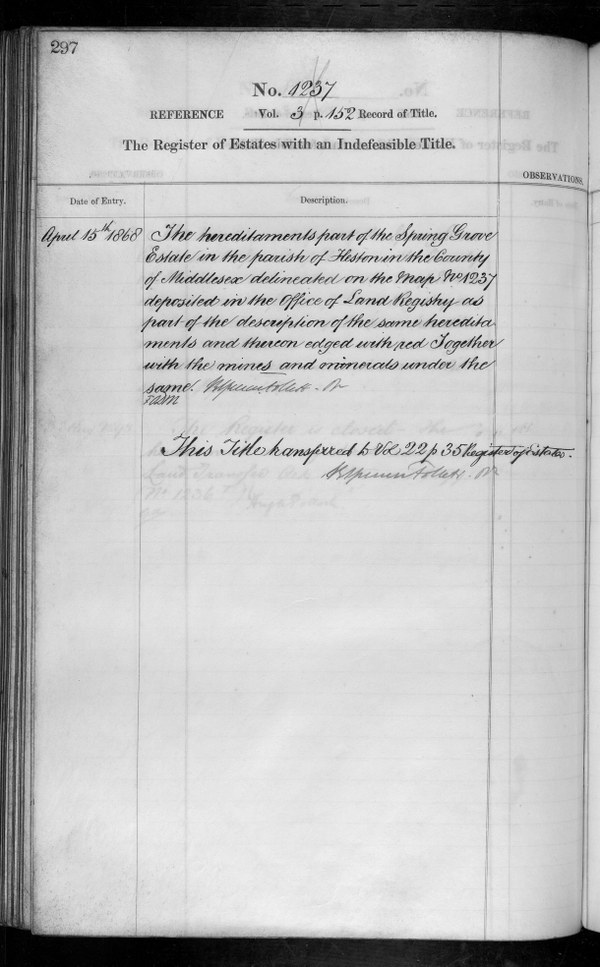 297
No. 1237
REFERENCE Vol. 3 p. 152 Record of Title.
The Register of Estates with an Indefeasible Title.
OBSERVATIONS.
Date of Entry.
Description.
April 15th 1868
The hereditaments part of the Spring Grove
Estate in the parish of Heston in the County
of Middlesex delineated on the Map No 1237
deposited in the Office of Land Registry as
part of the description of the same heredita
ments and thereon edged with red Together
with the mines and minerals under the
same.
This Title transferred to Vol 22 p 35 Register of Estates.